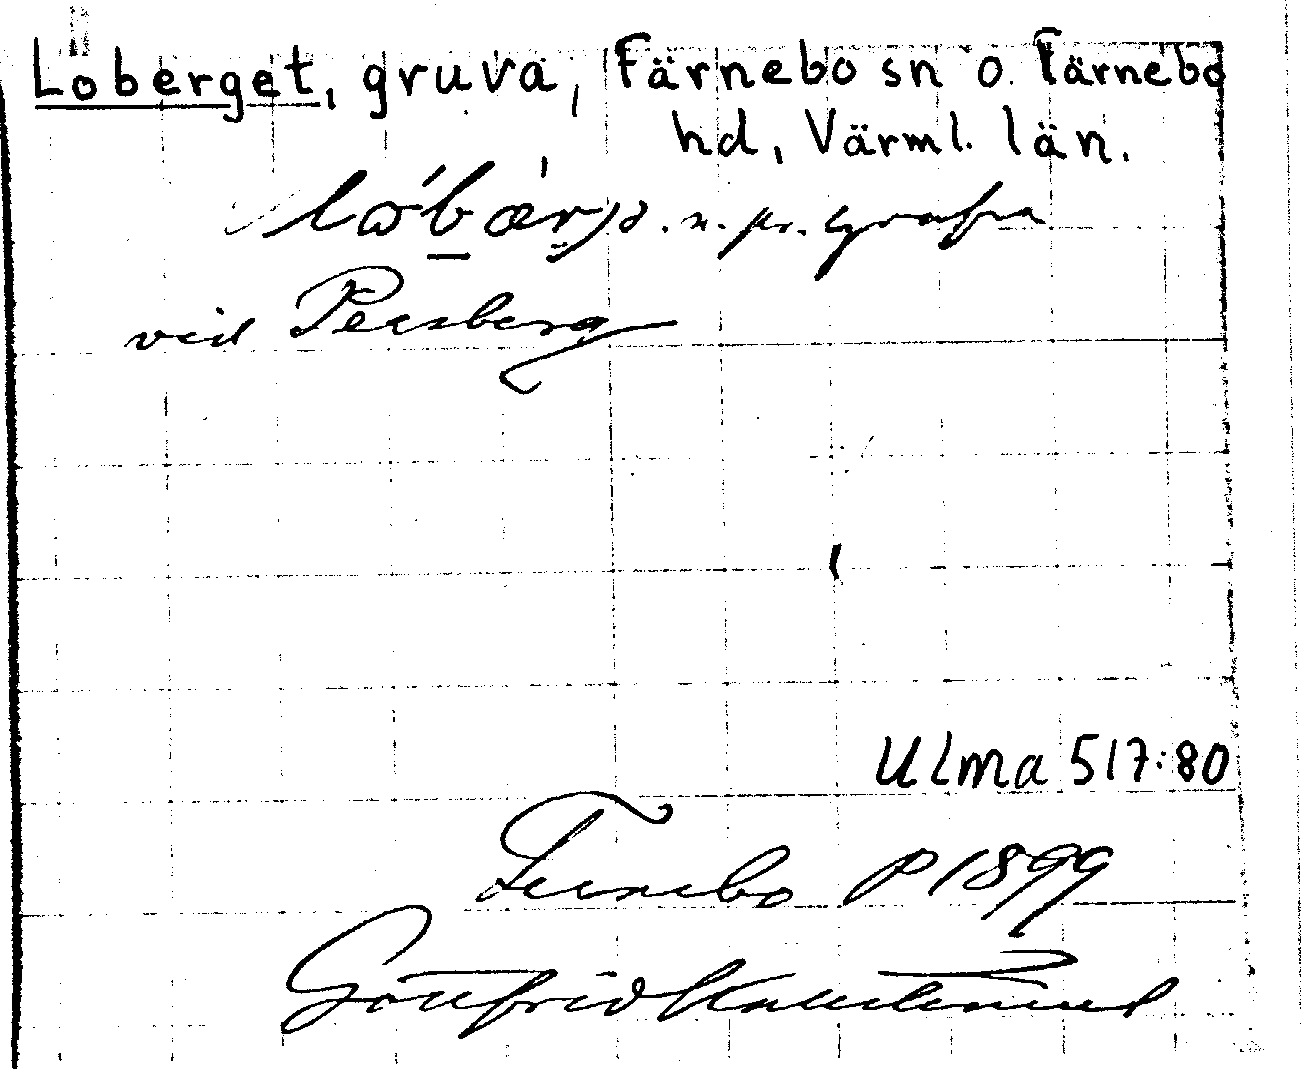 Loberget, gruva, Färnebo sn o. Färnebo
hd, Värml. län.
n. pr. grufva
vid Persberg
Ulma 517:80
Fernebo P 1899
Gottfrid Kallstenius